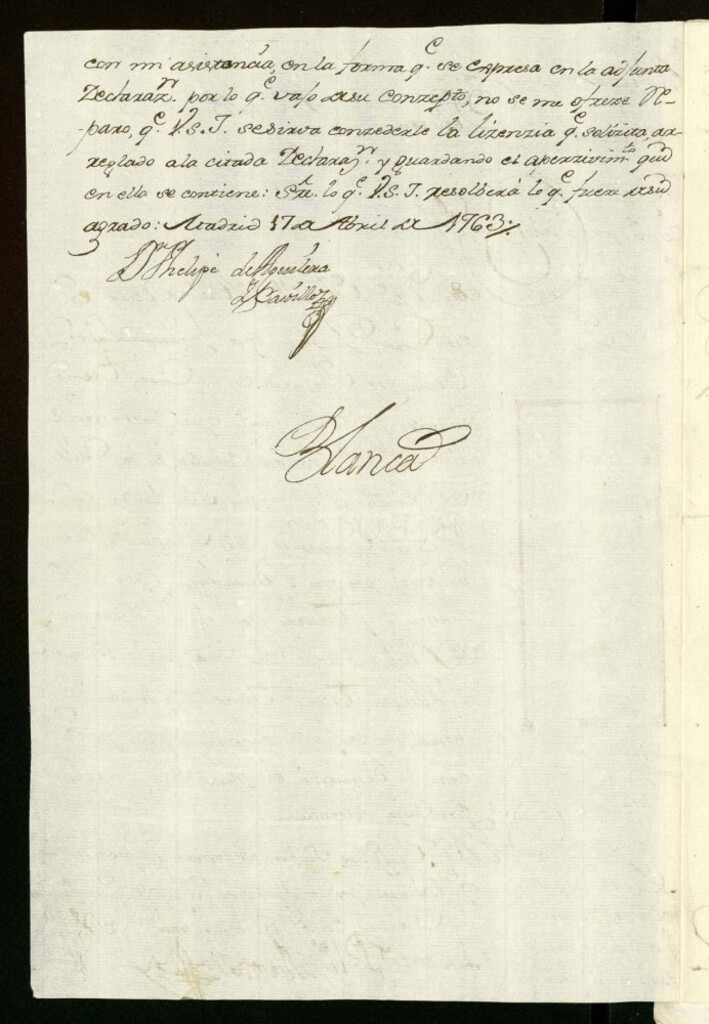 con mi asistencia, en la forma q.e se expresa en la adjunta
Declaraz.n por lo q.e vajo de su Conzepto, no se me ofreze Re-
-paro, q.e V.S.I. se sirva conzederle la lizenzia q.e solizita, ar-
reglado a la citada Declaraz.n y guardando el aperzivim.to que
en ella se contiene: Sre. lo q.e V.S.I. resolberá lo q.e fuere de su
agrado: Madrid 17 de Abril de 1763.
D.n Phelipe de Aguilera
Blanca